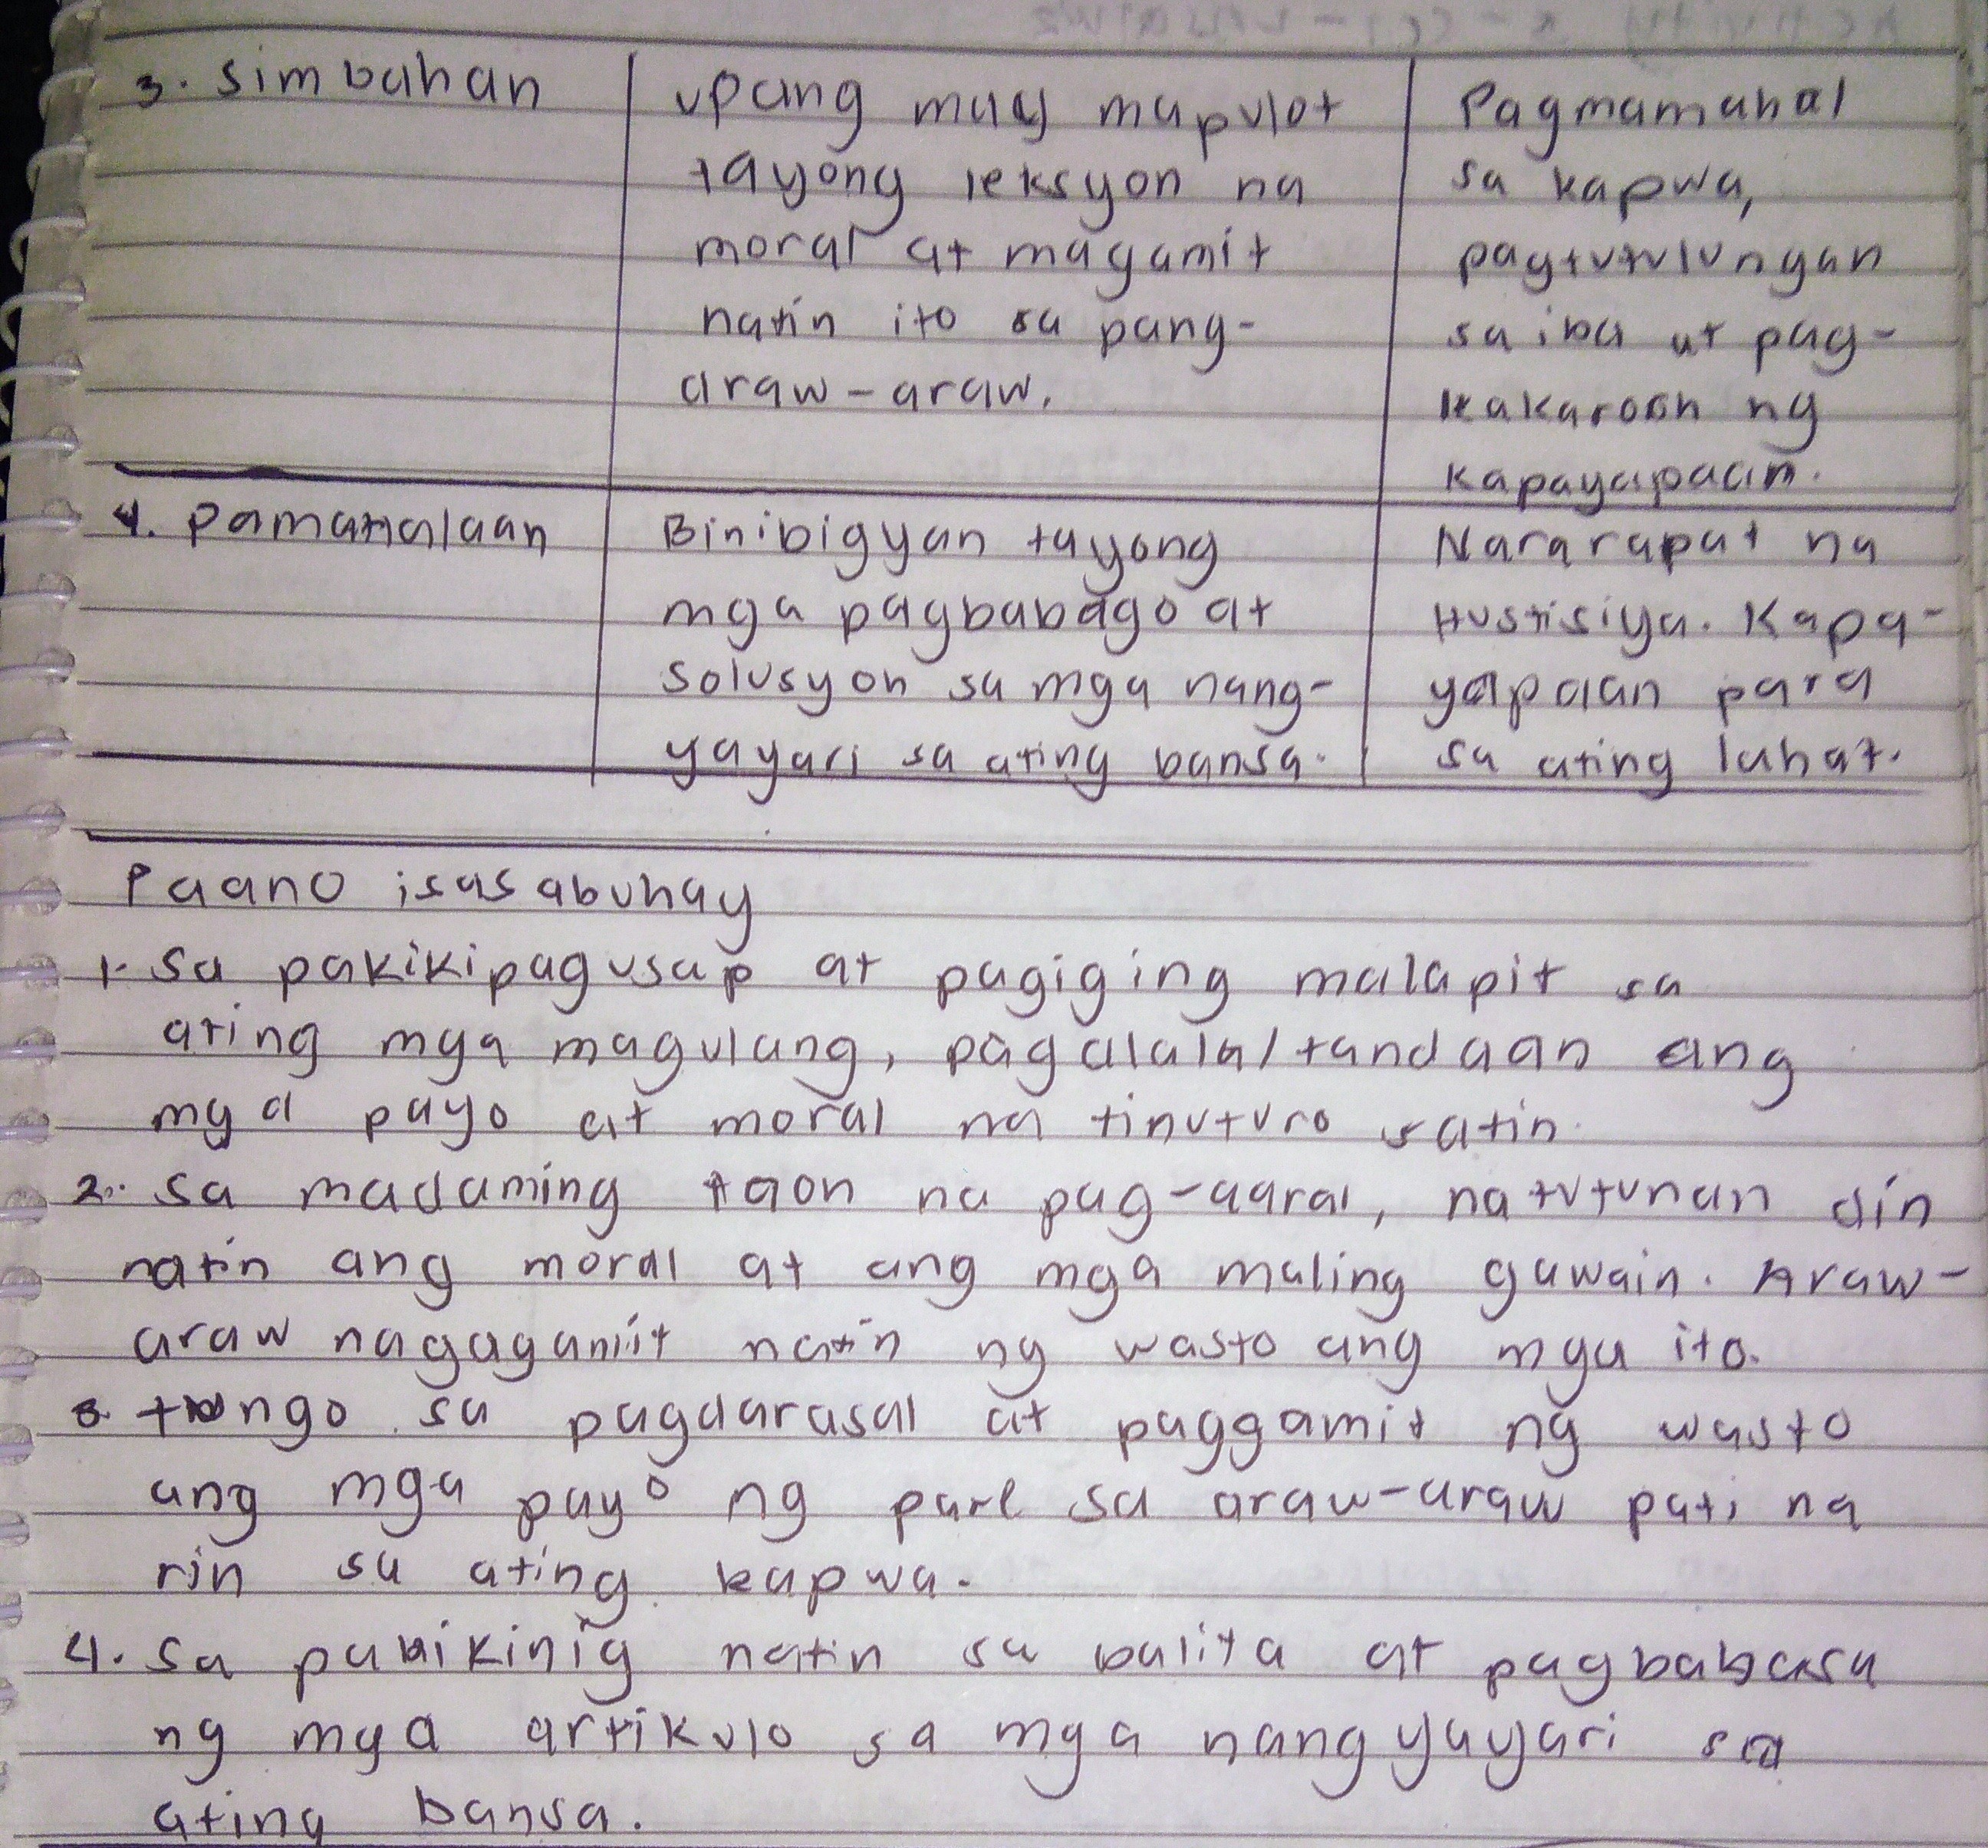 3. simbahan
upang may mapulot
tayong leksyon na
moral at magamit
natin ito sa pang-
araw-araw.
Pagmamahal
sa kapwa,
pagtutulungan
sa iba at pag-
kakaroon ng
kapayapaan.
4. Pamahalaan
Binibigyan tayong
mga pagbabago at
solusyon sa mga nang-
yayari sa ating bansa.
Nararapat na
Hustisiya. Kapa-
yapaan para
sa ating lahat.
Paano isasabuhay
1. Sa pakikipagusap at pagiging malapit sa
ating mga magulang, pagalala/tandaan ang
mga payo at moral na tinuturo satin.
2. Sa madaming taon na pag-aaral, natutunan din
natin ang moral at ang mga maling gawain. Araw-
araw nagagamit natin ng wasto ang mga ito.
3. tungo sa pagdarasal at paggamit ng wasto
ang mga payo ng pare sa araw-araw pati na
rin sa ating kapwa.
4. Sa pakikinig natin sa balita at pagbabasa
ng mga artikulo sa mga nangyayari sa
ating bansa.